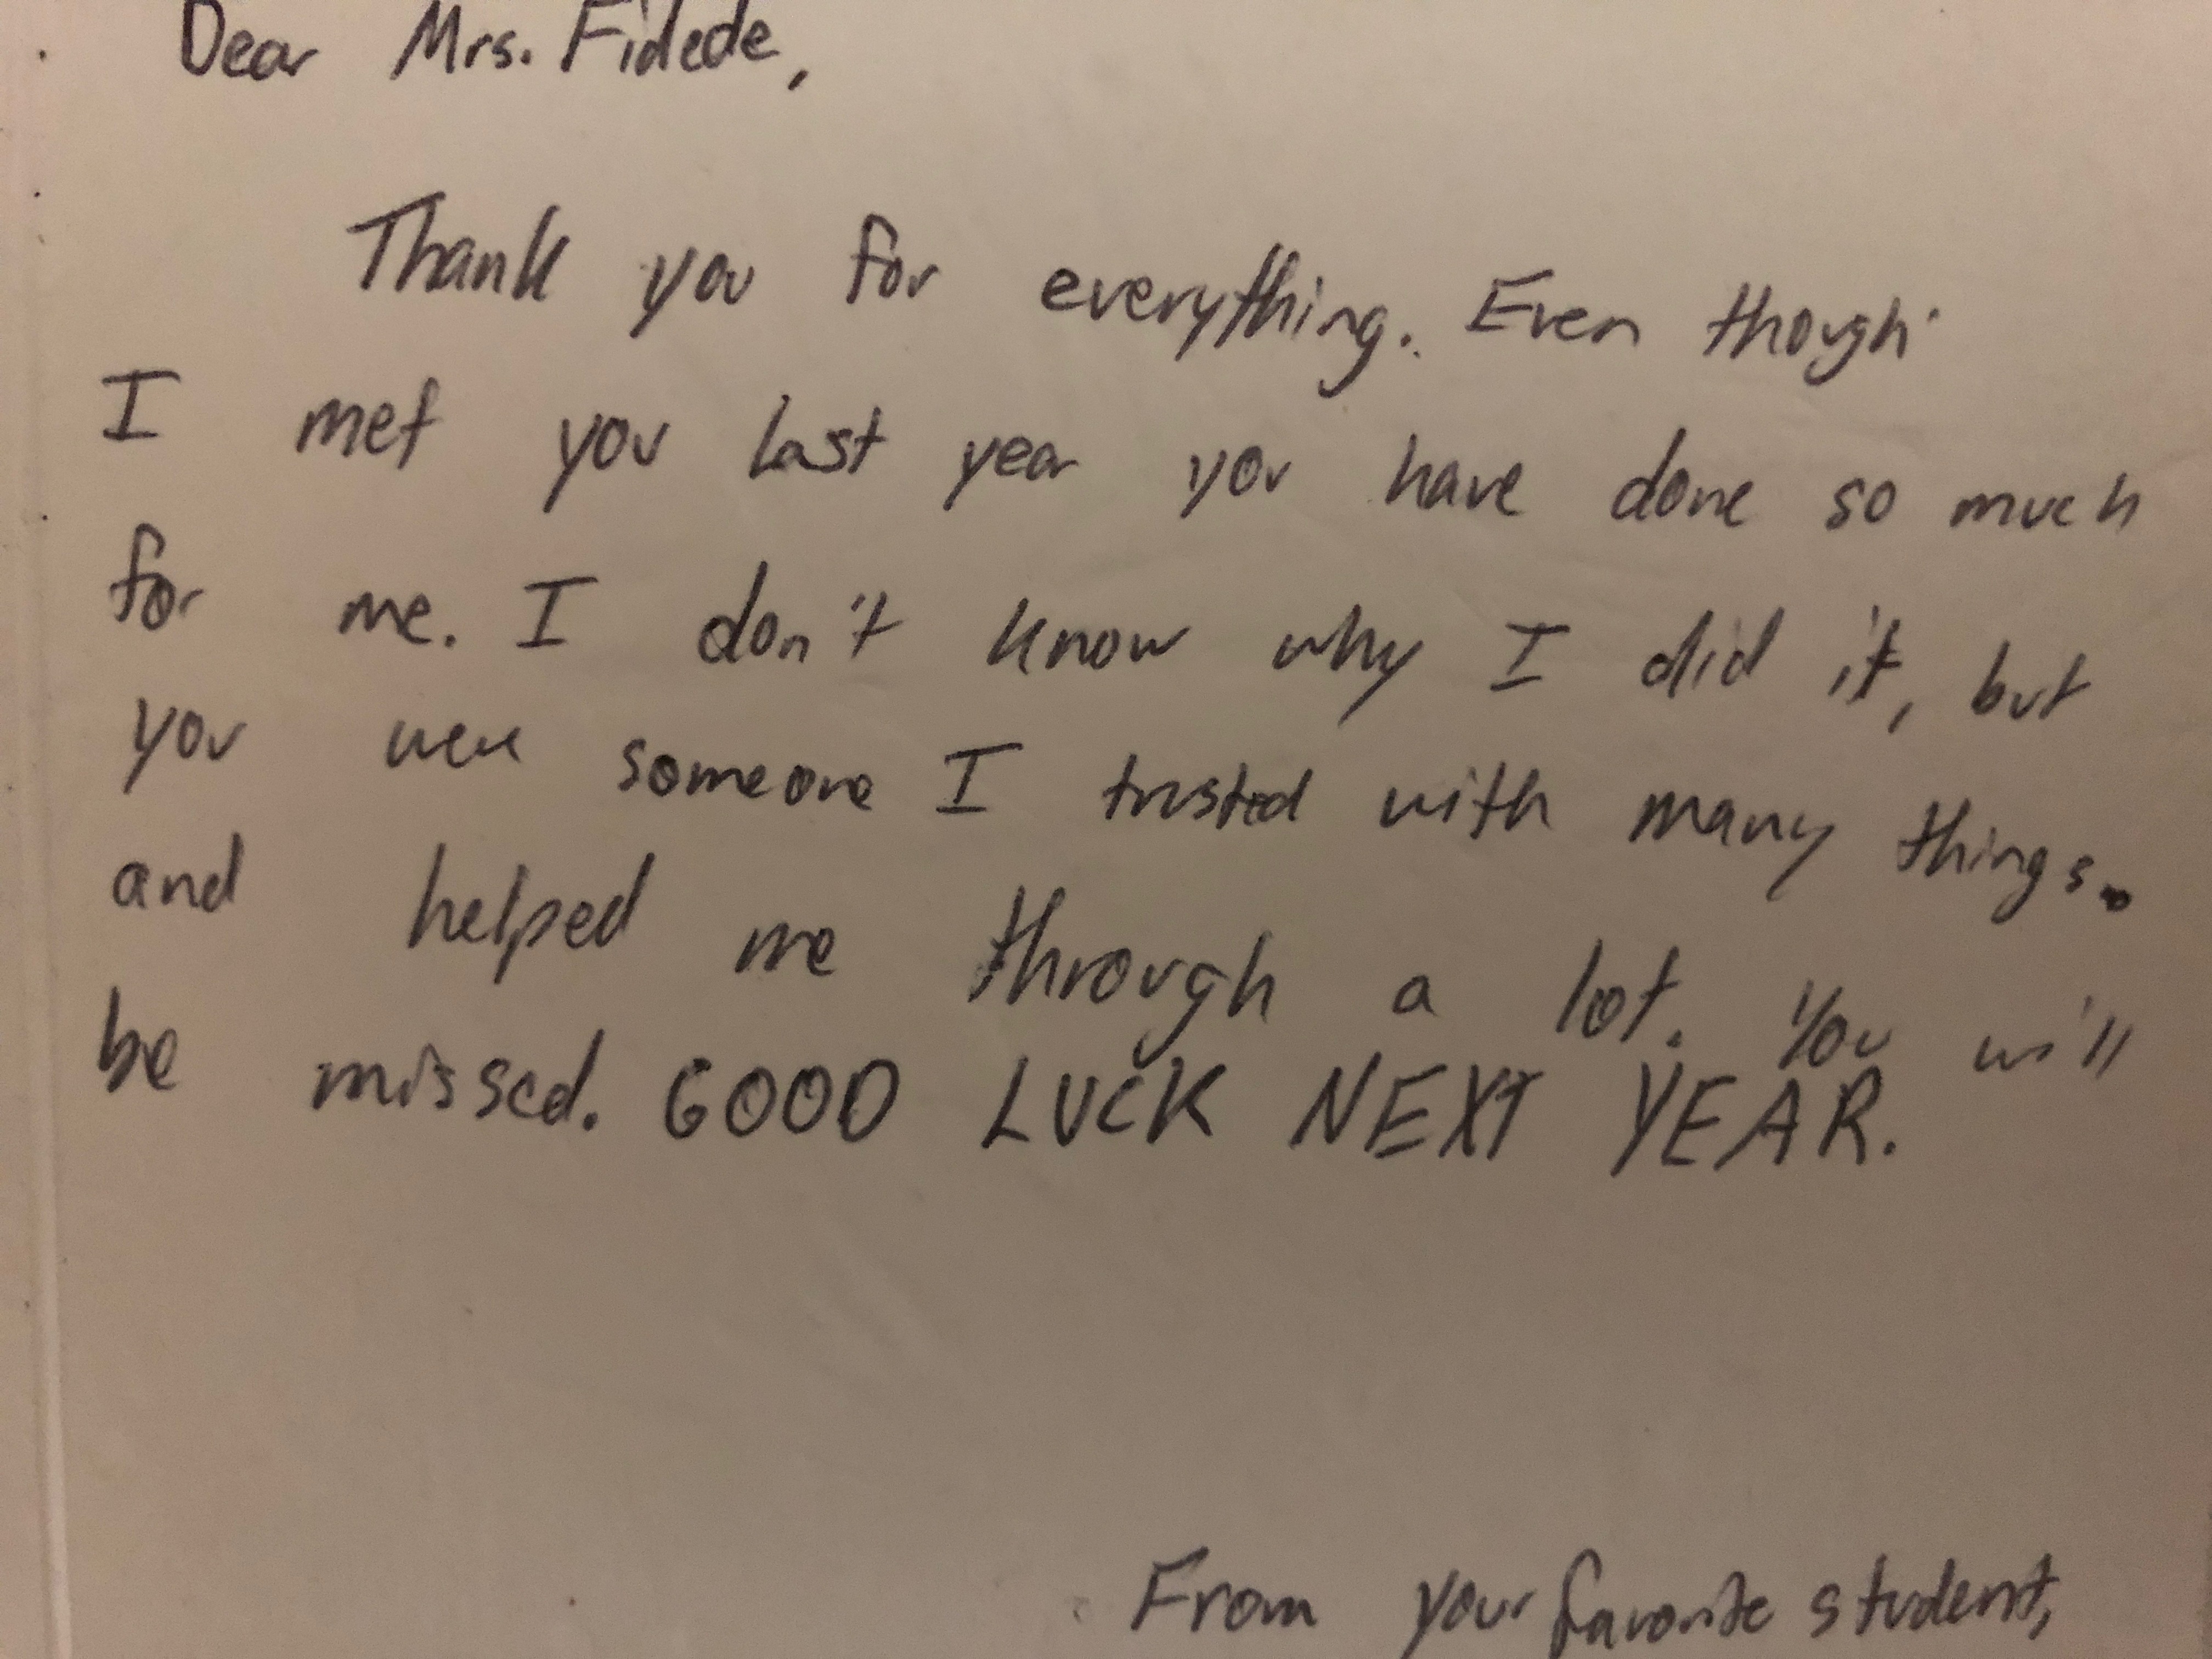 Dear Mrs. Fidede,
Thank you for everything. Even though
I met you last year you have done so much
for me. I don't know why I did it, but
you were someone I trusted with many things.
and helped me through a lot. You will
be missed. GOOD LUCK NEXT YEAR.
From your favorite student,